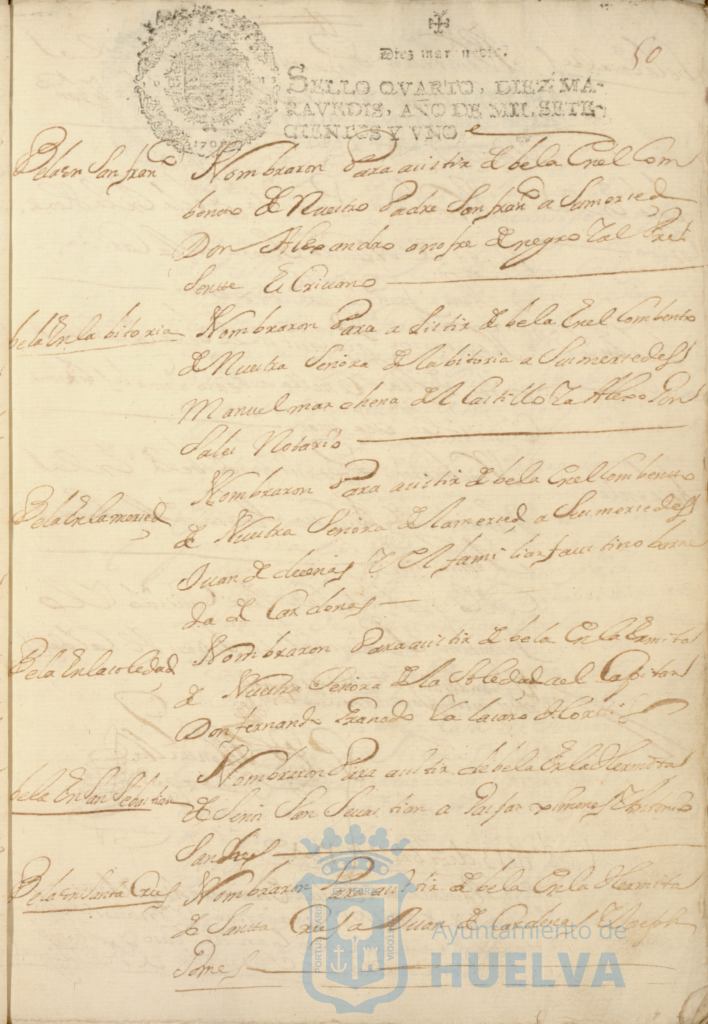 Diez mar nedis.
50
SELLO QVARTO, DIEZ MA-
RAVEDIS, AÑO DE MIL SETE-
CIENTOS Y VNO
Bela en San franco
Nombraron Para acistir de bela En el Com
bento de Nuestro Padre San franco a Sumerced
Don Alexandro onofre de negro Y al Pre
sente Escrivano
bela En la bitoria
Nombraron Para a Sistir de bela En el Combento
de Nuestra Señora de la bitoria a Sumercedes
Manuel marchena del Castillo Y a Alexo Gon
sales Notario
Bela En la merced
Nombraron Para acistir de bela En el Combento
de Nuestra Señora de la merced a Sumercedes
Juan de Y el familiar faustino
da de Cardenas
Bela En la soledad
Nombraron Para acistir de bela En la Ermita
de Nuestra Señora de la Soledad a el Capitan
Don fernando Granado Y a lasaro
bela En San Sebastian
Nombraron Para acistir de bela En la Hermita
de Señor San Sevastian a Gaspar ximenes Y Antonio
Sanches
Bela En Santa Crus
Nombraron Para acistir de bela En la Hermita
de Santa Crus a Juan de Cardenas Y Joseph
Gomes
Ayuntamiento de
HUELVA